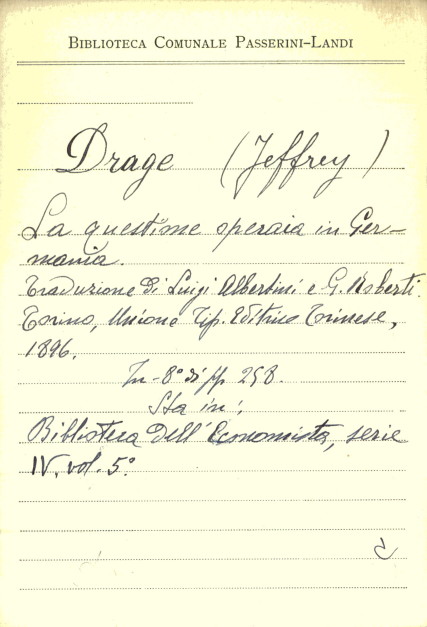 BIBLIOTECA COMUNALE PASSERINI-LANDI
Drage (Jeffrey)
La questione operaia in Ger-
mania.
Traduzione di Luigi Albertini e G. Roberti.
Torino, Unione Tip. Editrice Torinese,
1896.
In-8° di pp 258.
Sta in:
Biblioteca dell'Economista, serie
IV. vol. 5°.